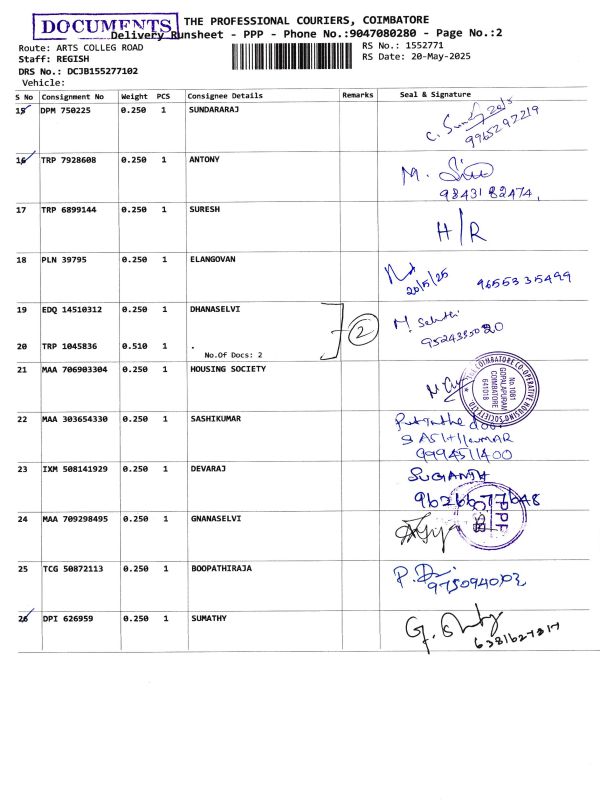 DOCUMENTS
THE PROFESSIONAL COURIERS, COIMBATORE
Delivery Runsheet - PPP - Phone No.:9047080280 - Page No.:2
Route: ARTS COLLEG ROAD
RS No.: 1552771
Staff: REGISH
RS Date: 20-May-2025
DRS No.: DCJB155277102
Vehicle:
S No Consignment No Weight PCS Consignee Details Remarks Seal & Signature
15 DPM 750225 0.250 1 SUNDARARAJ
9965297219
16 TRP 7928608 0.250 1 ANTONY
M.
9843182474,
17 TRP 6899144 0.250 1 SURESH H/R
18 PLN 39795 0.250 1 ELANGOVAN
20/5/25 9655335499
19 EDQ 14510312 0.250 1 DHANASELVI
2
20 TRP 1045836 0.510 1 .
No.Of Docs: 2
21 MAA 706903304 0.250 1 HOUSING SOCIETY
THE COIMBATORE CO-OPERATIVE HOUSING SOCIETY LTD
No.1081
GOPALAPURAM
COIMBATORE
641018
22 MAA 303654330 0.250 1 SASHIKUMAR
Put in the door
SASHIKUMAR
9994511400
23 IXM 508141929 0.250 1 DEVARAJ SUGANTH
9626677648
24 MAA 709298495 0.250 1 GNANASELVI
25 TCG 50872113 0.250 1 BOOPATHIRAJA
26 DPI 626959 0.250 1 SUMATHY